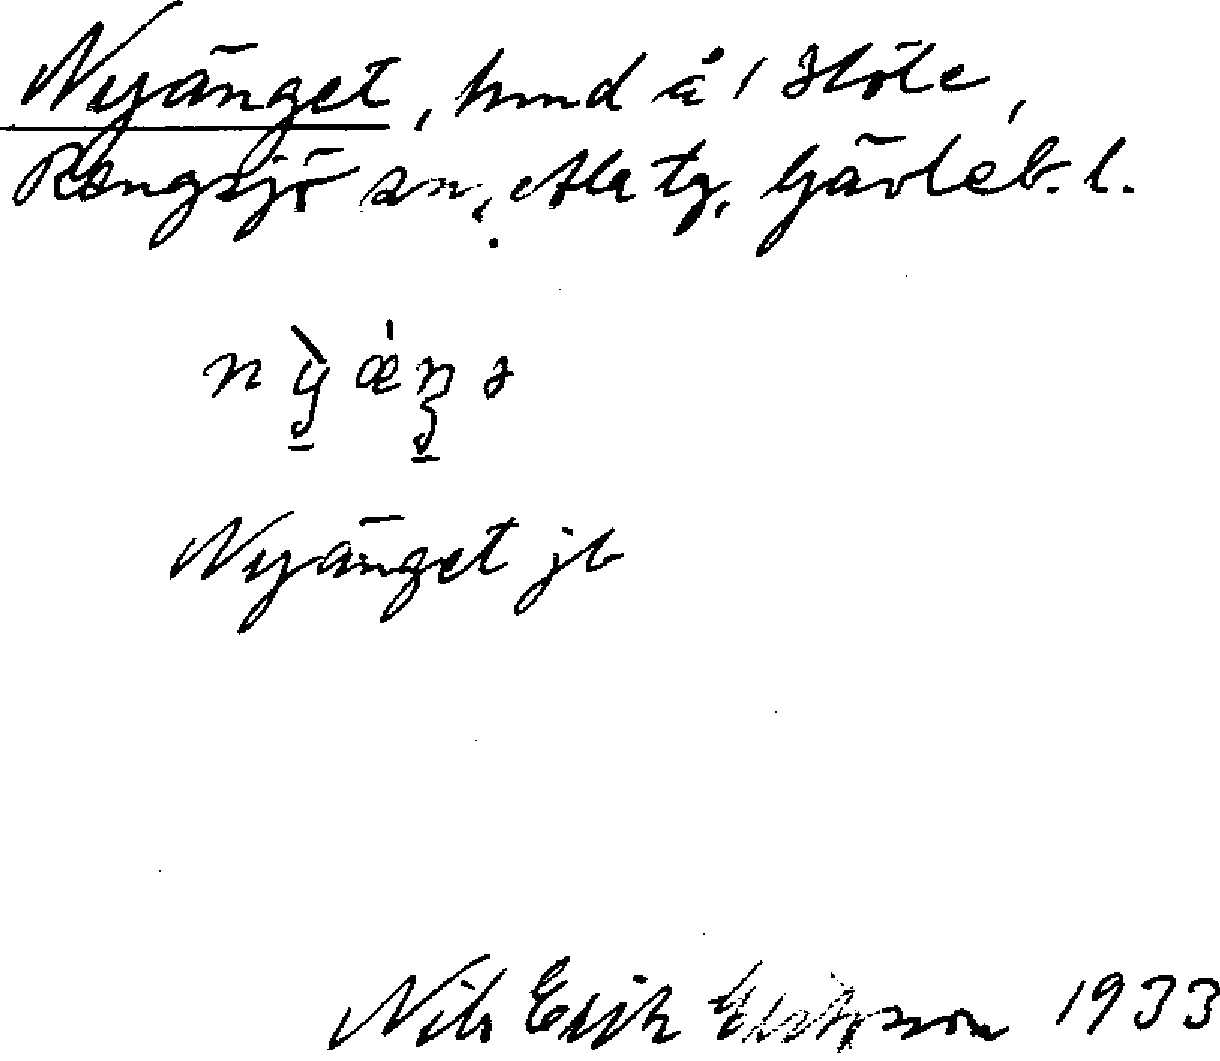 Nyänget, hmd å 1 Höle,
Rengsjö sn, Ala tg, Gävleb. l.
Nyänget jb
Nils Erik 1933